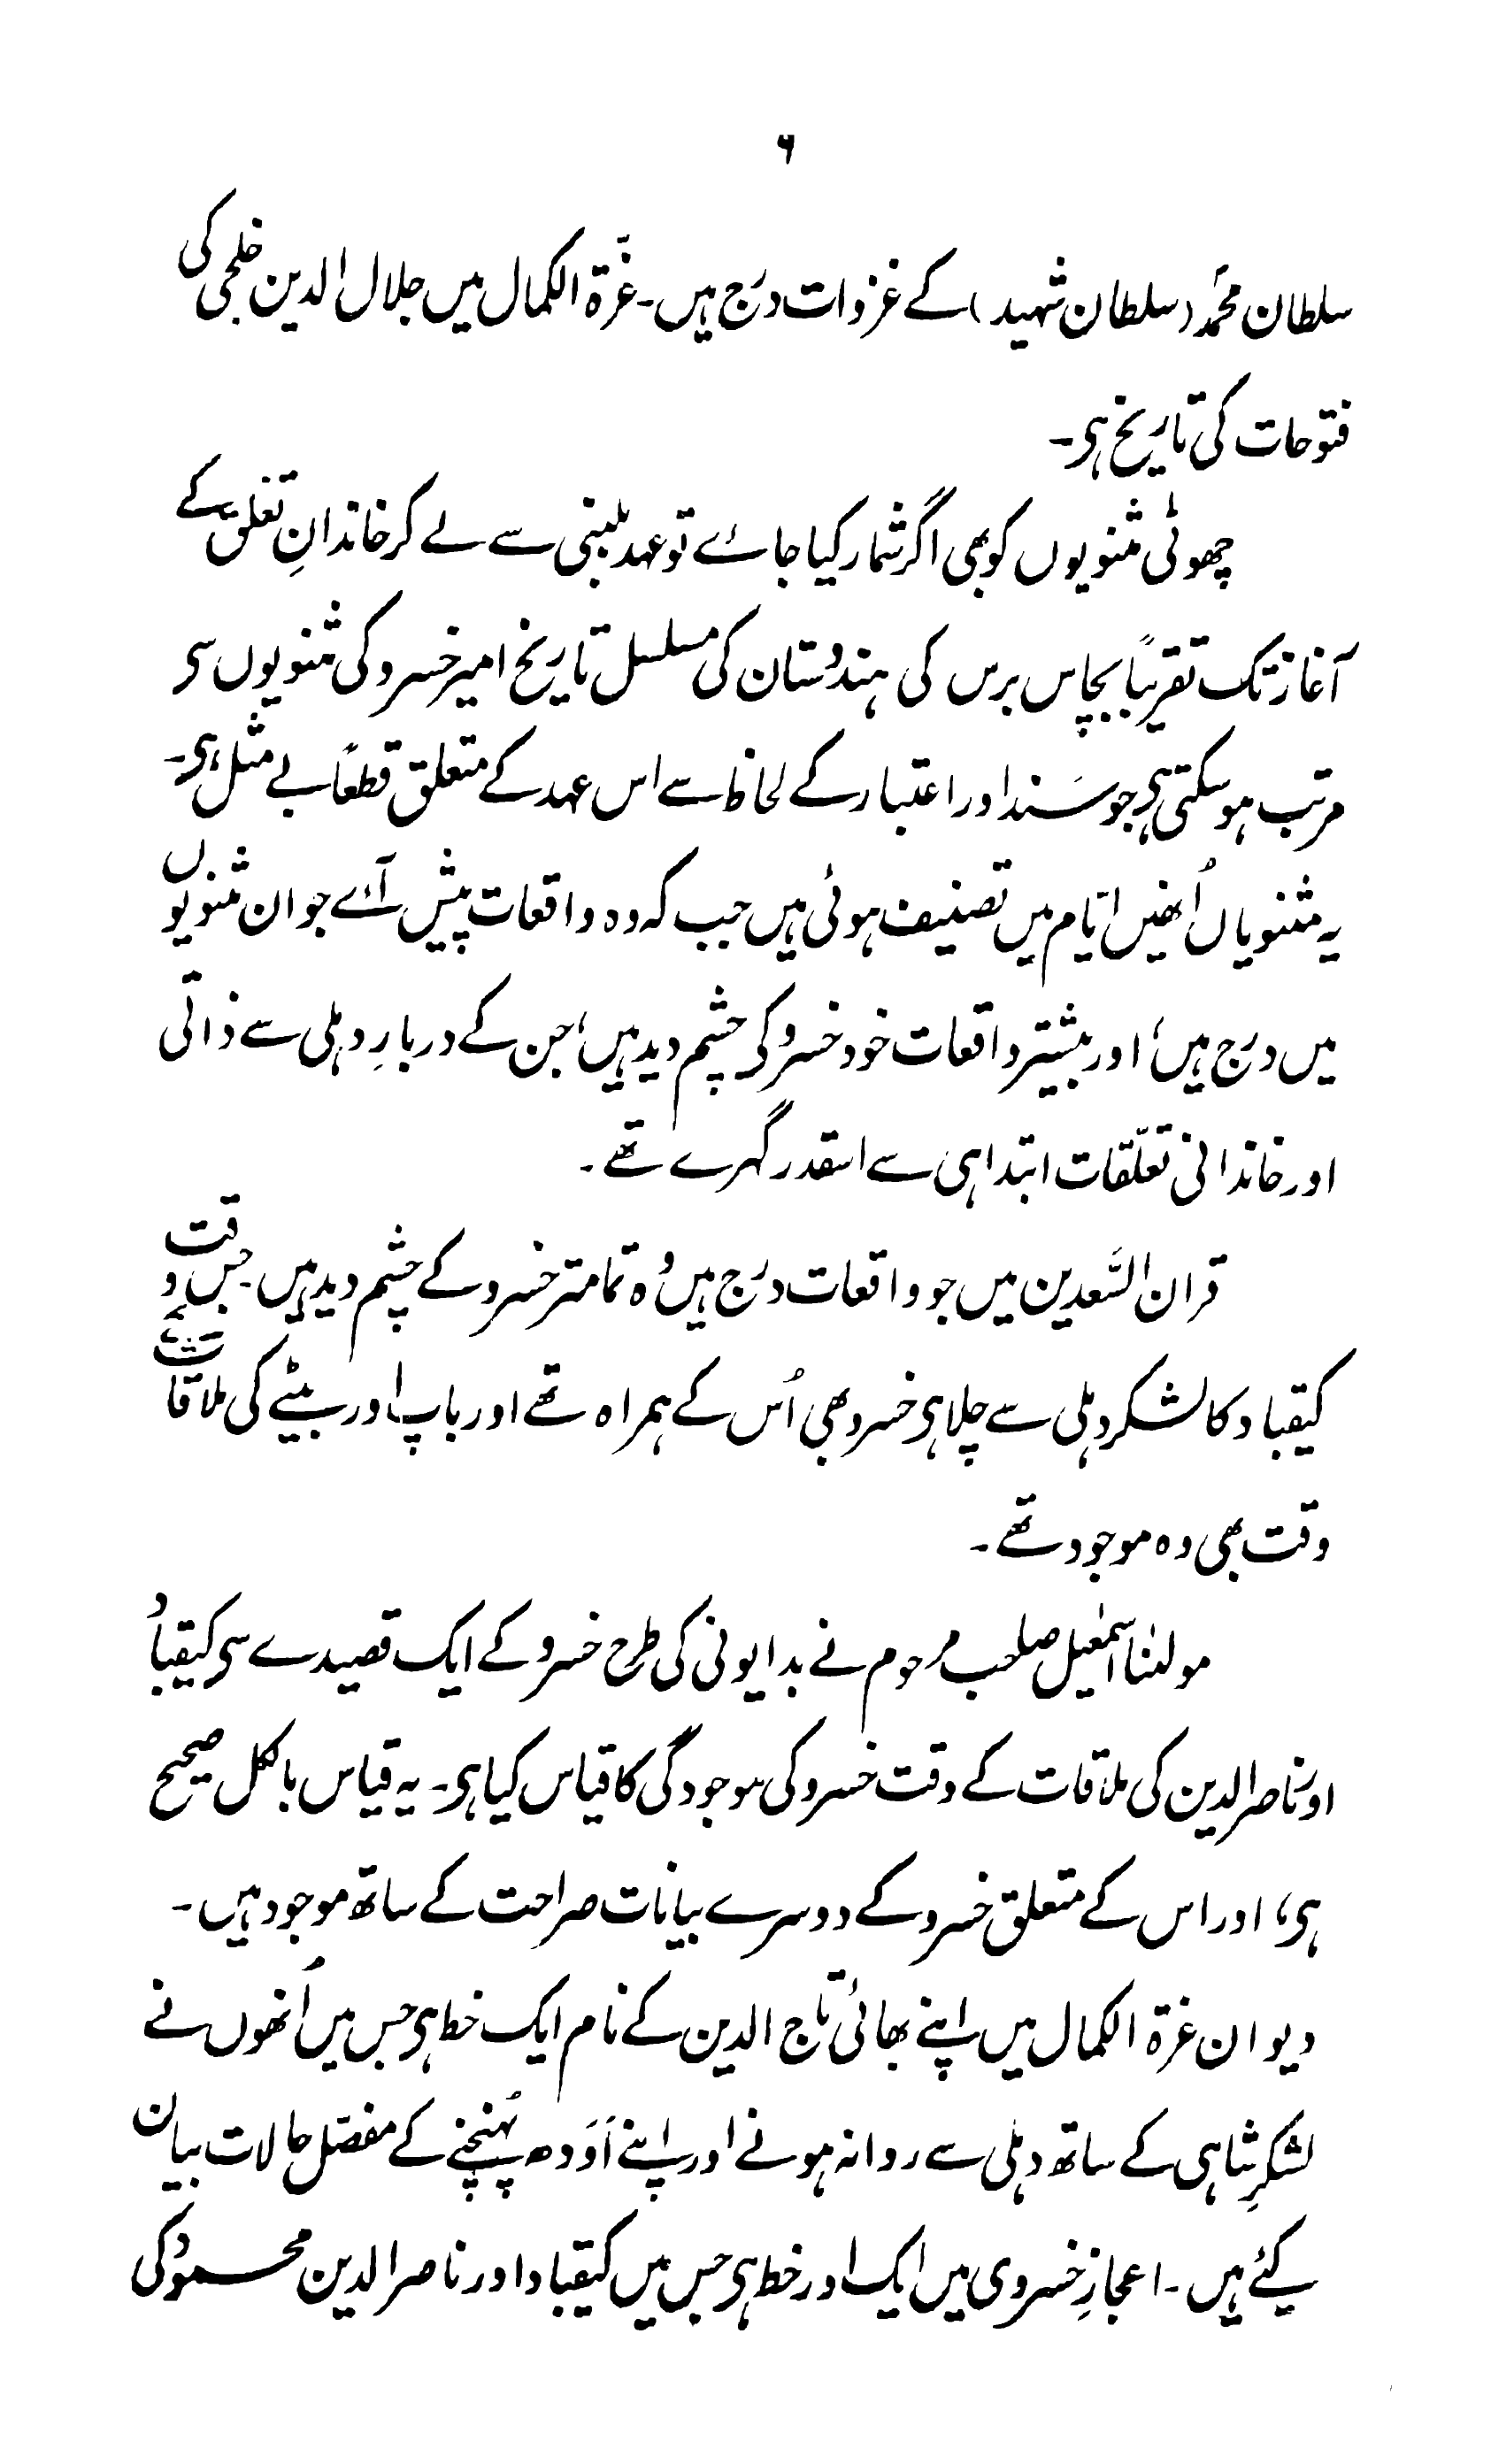 ۶
سلطان محمدؐ (سلطان شہید) کے غزوات درج ہیں۔ غرّۃ الکمال میں جلال الدین خلجی کی
فتوحات کی تاریخ ہی۔
چھوٹی مثنویوں کو بھی اگر شمار کیا جائے تو عہد بلبنی سے لے کر خاندانِ تغلق کے
آغاز تک تقریباً پچاس برس کی ہندُستان کی مسلسل تاریخ امیر خسرو کی مثنویوں سی
مرتب ہو سکتی ہی جو سَند اور اعتبار کے لحاظ سے اس عہد کے متعلق قطعاً بے مثل ہی۔
یہ مثنویاں اُنھیں ایّام میں تصنیف ہوئی ہیں جب کہ وہ واقعات پیش آئے جو ان مثنویوں
میں درج ہیں، اور بیشتر واقعات خود خسرو کی چشم دید ہیں، جن کے دربارِ دہلی سے ذاتی
اور خاندانی تعلّقات ابتدا ہی سے اسقدر گہرے تھے۔
قران السَّعدین میں جو واقعات درج ہیں وُہ تمامتر خسرو کے چشم دید ہیں۔ جس وقت
کیقباد کا لشکر دہلی سے چلا ہی خسرو بھی اُس کے ہمراہ تھے اور باپ اور بیٹے کی ملاقات کے
وقت بھی وہ موجود تھے۔
مولٰنا اسمٰعیل صاحب مرحوم نے بدایونی کی طرح خسرو کے ایک قصیدے سی کیقباد
اور ناصر الدین کی ملاقات کے وقت خسرو کی موجودگی کا قیاس کیا ہی۔ یہ قیاس بالکل صحیح
ہی، اور اس کے متعلق خسرو کے دوسرے بیانات صراحت کے ساتھ موجود ہیں۔
دیوان غرۃ الکمال میں اپنے بھائی تاج الدین کے نام ایک خط ہی جس میں اُنھوں نے
لشکرِ شاہی کے ساتھ دہلی سے روانہ ہونے اور اپنے اَوَدھ پہُنچنے کے مفصّل حالات بیان
کیٔے ہیں۔ اعجازِ خسروی میں ایک اور خط ہی جس میں کیقباد اور ناصر الدین محمود کی